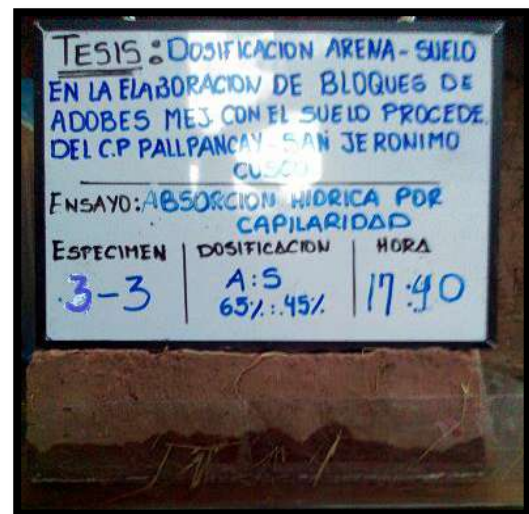 TESIS: DOSIFICACION ARENA - SUELO
EN LA ELABORACION DE BLOQUES DE
ADOBES MEJ CON EL SUELO PROCEDE.
DEL C.P PALLPANCAY - SAN JERONIMO
CUSCO
ENSAYO: ABSORCION HIDRICA POR
CAPILARIDAD
ESPECIMEN DOSIFICACION HORA
3-3 A:S 17:40
65%:.45%